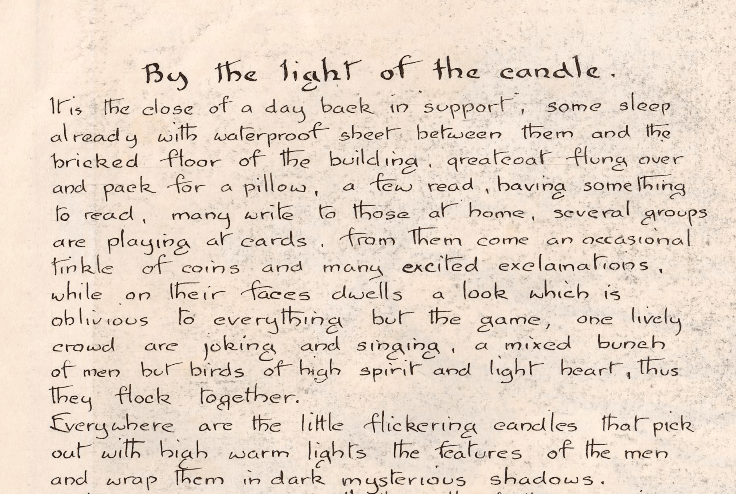 By the light of the candle.
It is the close of a day back in "support", some sleep
already with waterproof sheet between them and the
bricked floor of the building, greatcoat flung over
and pack for a pillow, a few read, having something
to read, many write to those at home, several groups
are playing at cards, from them come an occasional
tinkle of coins and many excited exclamations,
while on their faces dwells a look which is
oblivious to everything but the game, one lively
crowd are joking and singing, a mixed bunch
of men but birds of high spirit and light heart, thus
they flock together.
Everywhere are the little flickering candles that pick
out with high warm lights the features of the men
and wrap them in dark mysterious shadows.